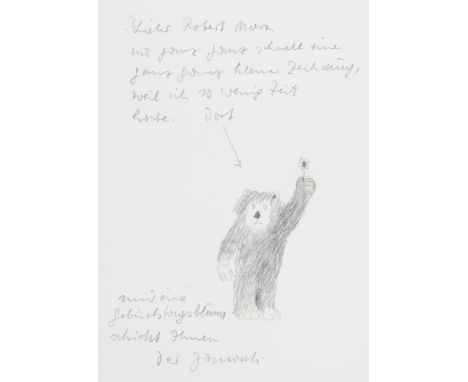 Lieber Robert
nur ganz ganz schnell eine
ganz ganz kleine Zeichnung,
weil ich so wenig Zeit
habe. Dort
und eine
geburtstagsblume
schickt Ihnen
Der Janosch